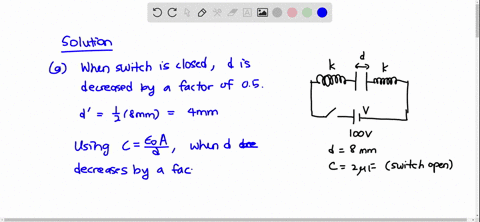 Solution
(a) When switch is closed, d is
decreased by a factor of 0.5.
d' = 1/2 (8mm) = 4mm
Using C = ε₀A/d, when d
decreases by a fac.
d
k k
V
100V
d = 8 mm
C = 2μF (switch open)